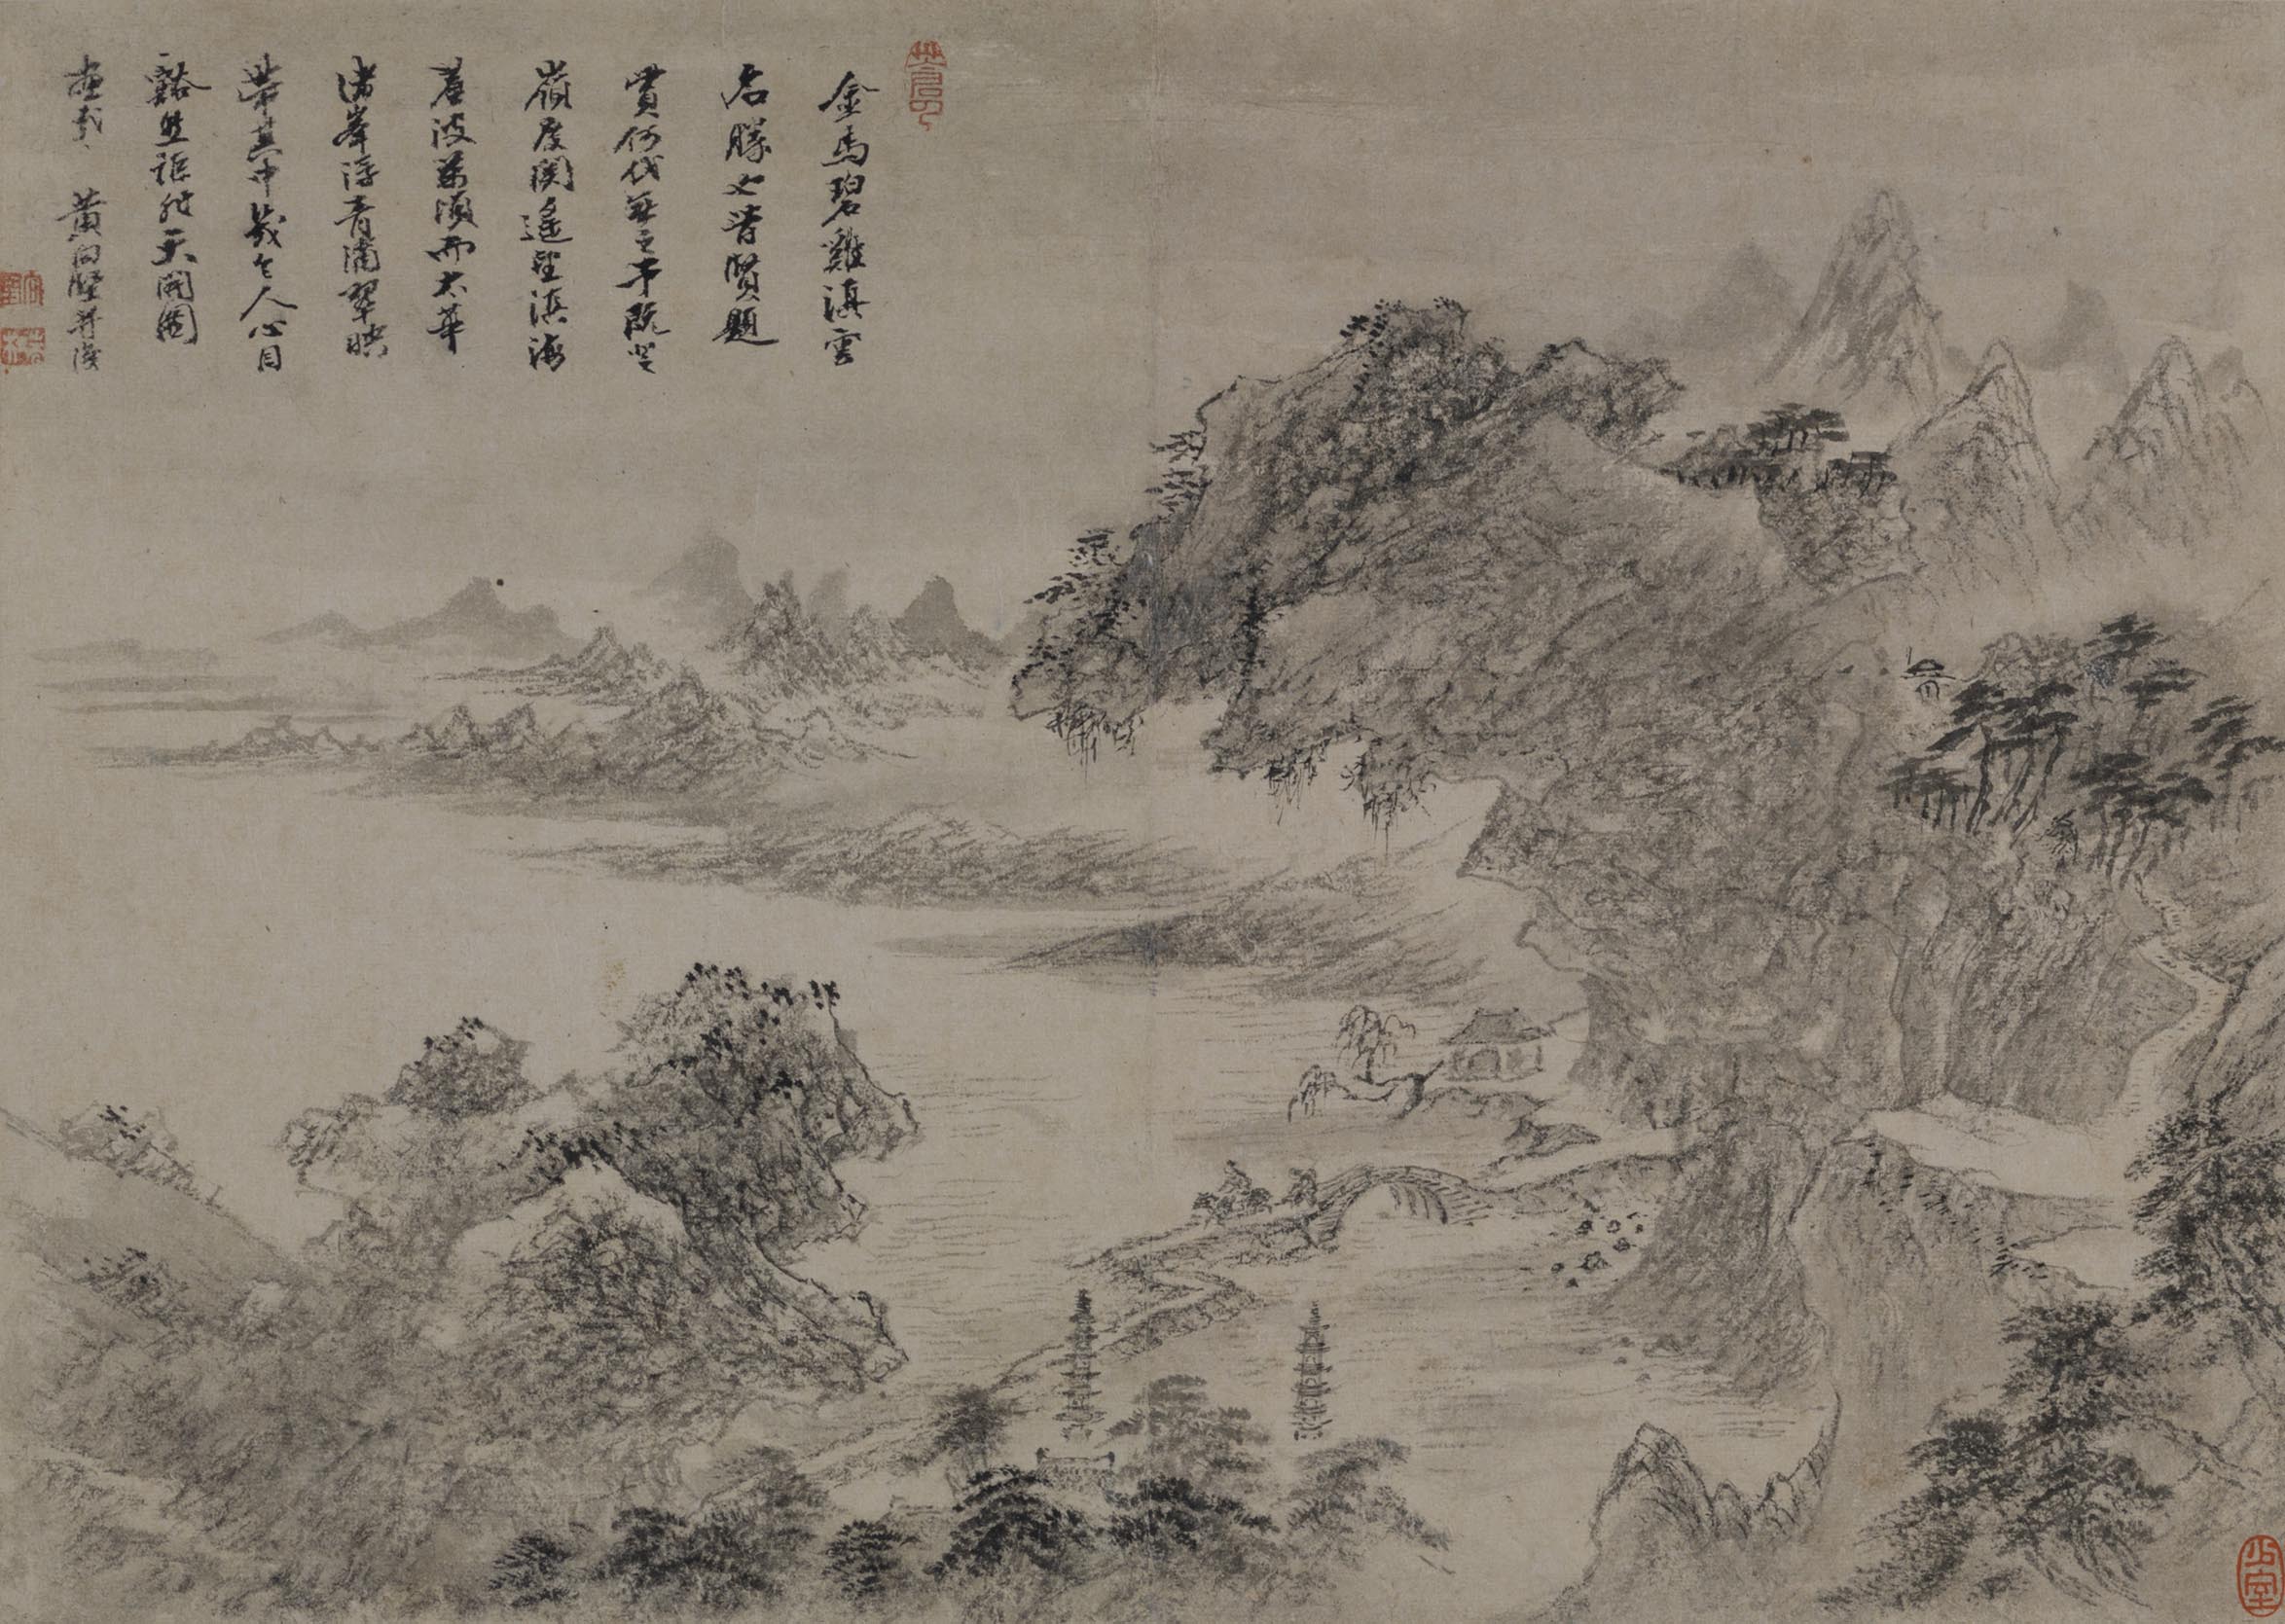 金馬碧雞滇雲
名勝也昔賢題
貫何代無之予既登
嶺度関遙望滇海
蒼波萬頃而太華
諸峯浮青滴翠映
帶其中幾令人心目
豁然詎非天開圖
畫哉 黃向堅并識